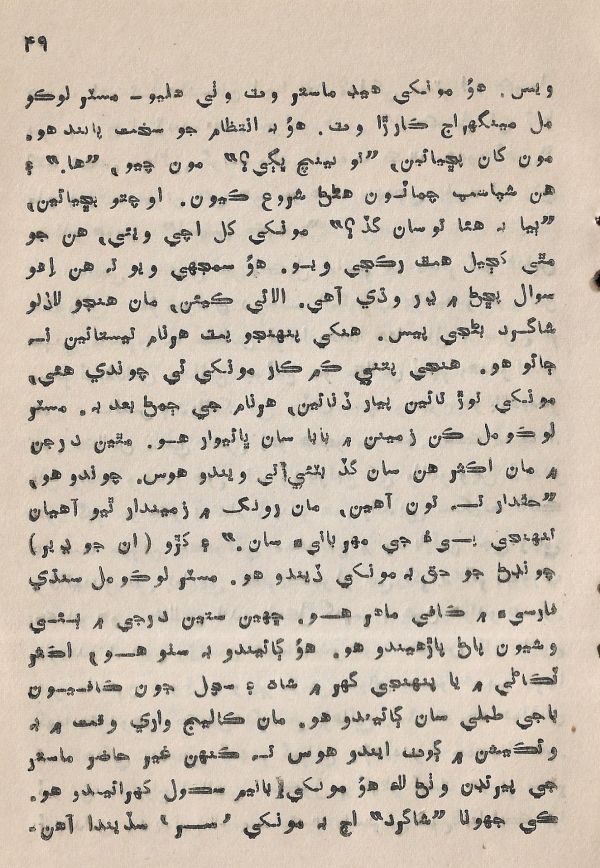 ۴۹
ويس. هوُ مونکي هيڊ ماستر وٽ وٺي هليو - مسٽر لوڪو
مل مينگهراج ڪارڙا وٽ. هوُ بہ انتظام جو سخت پابند هو.
مون کان پڇيائين, ”تو نينڍ پڳي؟“ مون چيو, ”ها.“ ۽
هن شپاشپ چماٽون هڻڻ شروع ڪيون. اوچتو پڇيائين,
”ٻيا بہ هئا توسان گڏ؟“ مونکي کل اچي ويئي, هن جو
مٿي کڄيل هٿ رڪجي ويو. هوُ سمجهي ويو تہ هن اِهو
سوال پڇڻ ۾ دير وڌي آهي. الائي ڪيئن, مان هنجو لاڏلو
شاگرد بڻجي پيس. هنکي پنهنجو پٽ هرنام تيستائين نہ
ڄائو هو. هنجي پتني ڪم ڪار مونکي ئي چوندي هئي,
مونکي توڙ تائين پيار ڏنائين, هرنام جي ڄمڻ بعد بہ. مسٽر
لوڪو مل ڪن زمينن ۾ بابا سان ڀائيوار هو. مٿين درجن
۾ مان اڪثر هن سان گڏ بٽئي تي ويندو هوس. چوندو هو,
”حقدار تہ تون آهين, مان رونگ ۾ زميندار ٿيو آهيان
تنهنجي پيءُ جي مهربانيءَ سان.“ ۽ کڙو (ان جو ڍير)
چونڊڻ جو حق بہ مونکي ڏيندو هو. مسٽر لوڪو مل سنڌي
فارسيءَ ۾ ڪافي ماهر هو. ڇهين ستين درجي ۾ ٻئي
وشيون پاڻ پاڙهيندو هو. هوُ ڳائيندو بہ سٺو هو, اڪثر
ٽڪاڻي ۾ يا پنهنجي گهر ۾ شاہ ۽ سچل جون ڪافيون
باجي طبلي سان ڳائيندو هو. مان ڪاليج واري وقت ۾ بہ
وئڪيشن ۾ ڳوٺ ايندو هوس تہ ڪنهن غير حاضر ماستر
جي پيرئڊن وٺڻ لاءِ هوُ مونکي پاڻيهر سڪول گهرائيندو هو.
کي جهونا ”شاگرد“ اڄ بہ مونکي ’سر‘ سڏيندا آهن.